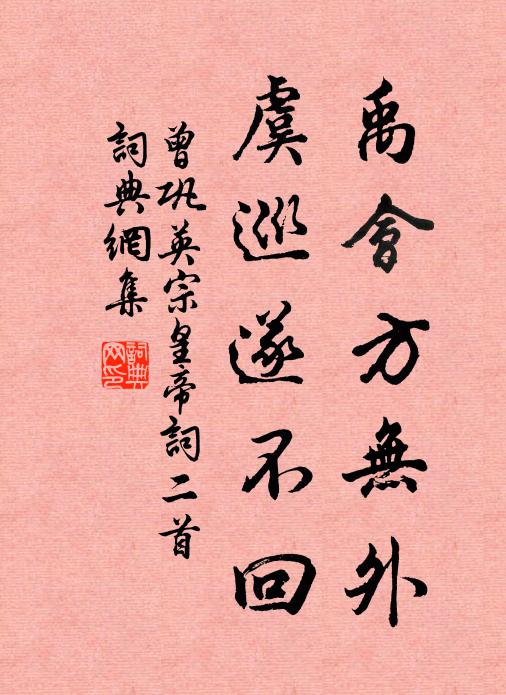 禹會方無外
虞巡遂不回
曾巩英宗皇帝詞二首
詞典網集
詞典網印